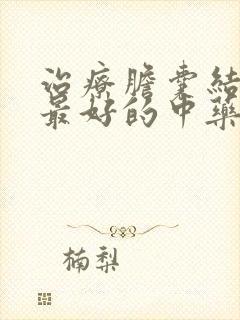 治療膽囊結
最好的中藥
楠梨